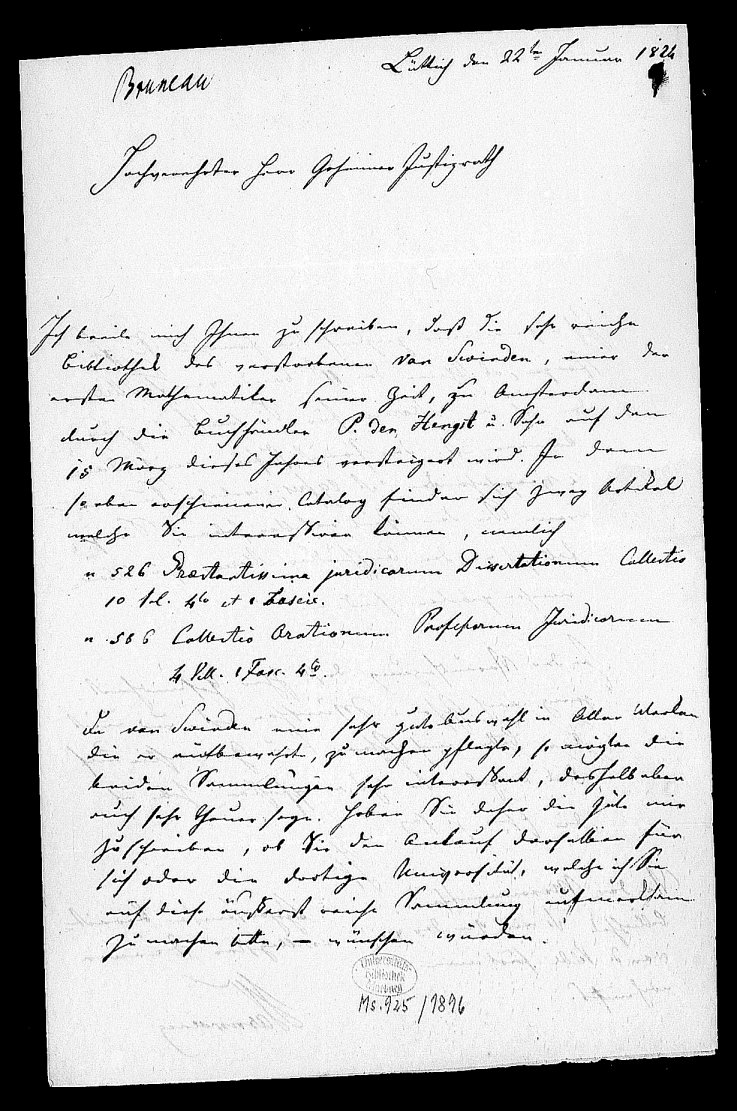 Bruneau
Lüttich den 22ten Januar 1824
Hochverehrter Herr Geheimer Justizrath
Ich beeile mich Ihnen zu schreiben, daß die sehr reiche
Bibliothek des verstorbenen Van Swinden, einer der
ersten Mathematiker seiner Zeit, zu Amsterdam
durch die Buchhändler P. den Hengst u. Sohn auf den
15 März dieses Jahres versteigert wird. In dem
so eben erschienenen Catalog finden sich zwey Artikel
welche Sie interessiren können, nemlich
n 526 Præstantissima juridicarum Dissertationum Collectio
10 vol. 4to et 1 Fascic.
n 586 Collectio Orationum Professorum Juridicarum
4 Vll. 1 Fasc. 4to.
Da van Swinden eine sehr gute Auswahl in Allen Werken
die er aufbewahrte, zu machen pflegte, so mögten die
beiden Sammlungen sehr interessant, deshalb aber
auch sehr theuer seyn. Haben Sie daher die Güte mir
zu schreiben, ob Sie den Ankauf derselben für
sich oder die dortige Universität, welche ich Sie
auf diese äußerst reiche Sammlung aufmerksam
zu machen bitte, – wünschen würden.
Universitäts-
Bibliothek
Marburg
Ms. 925/1896